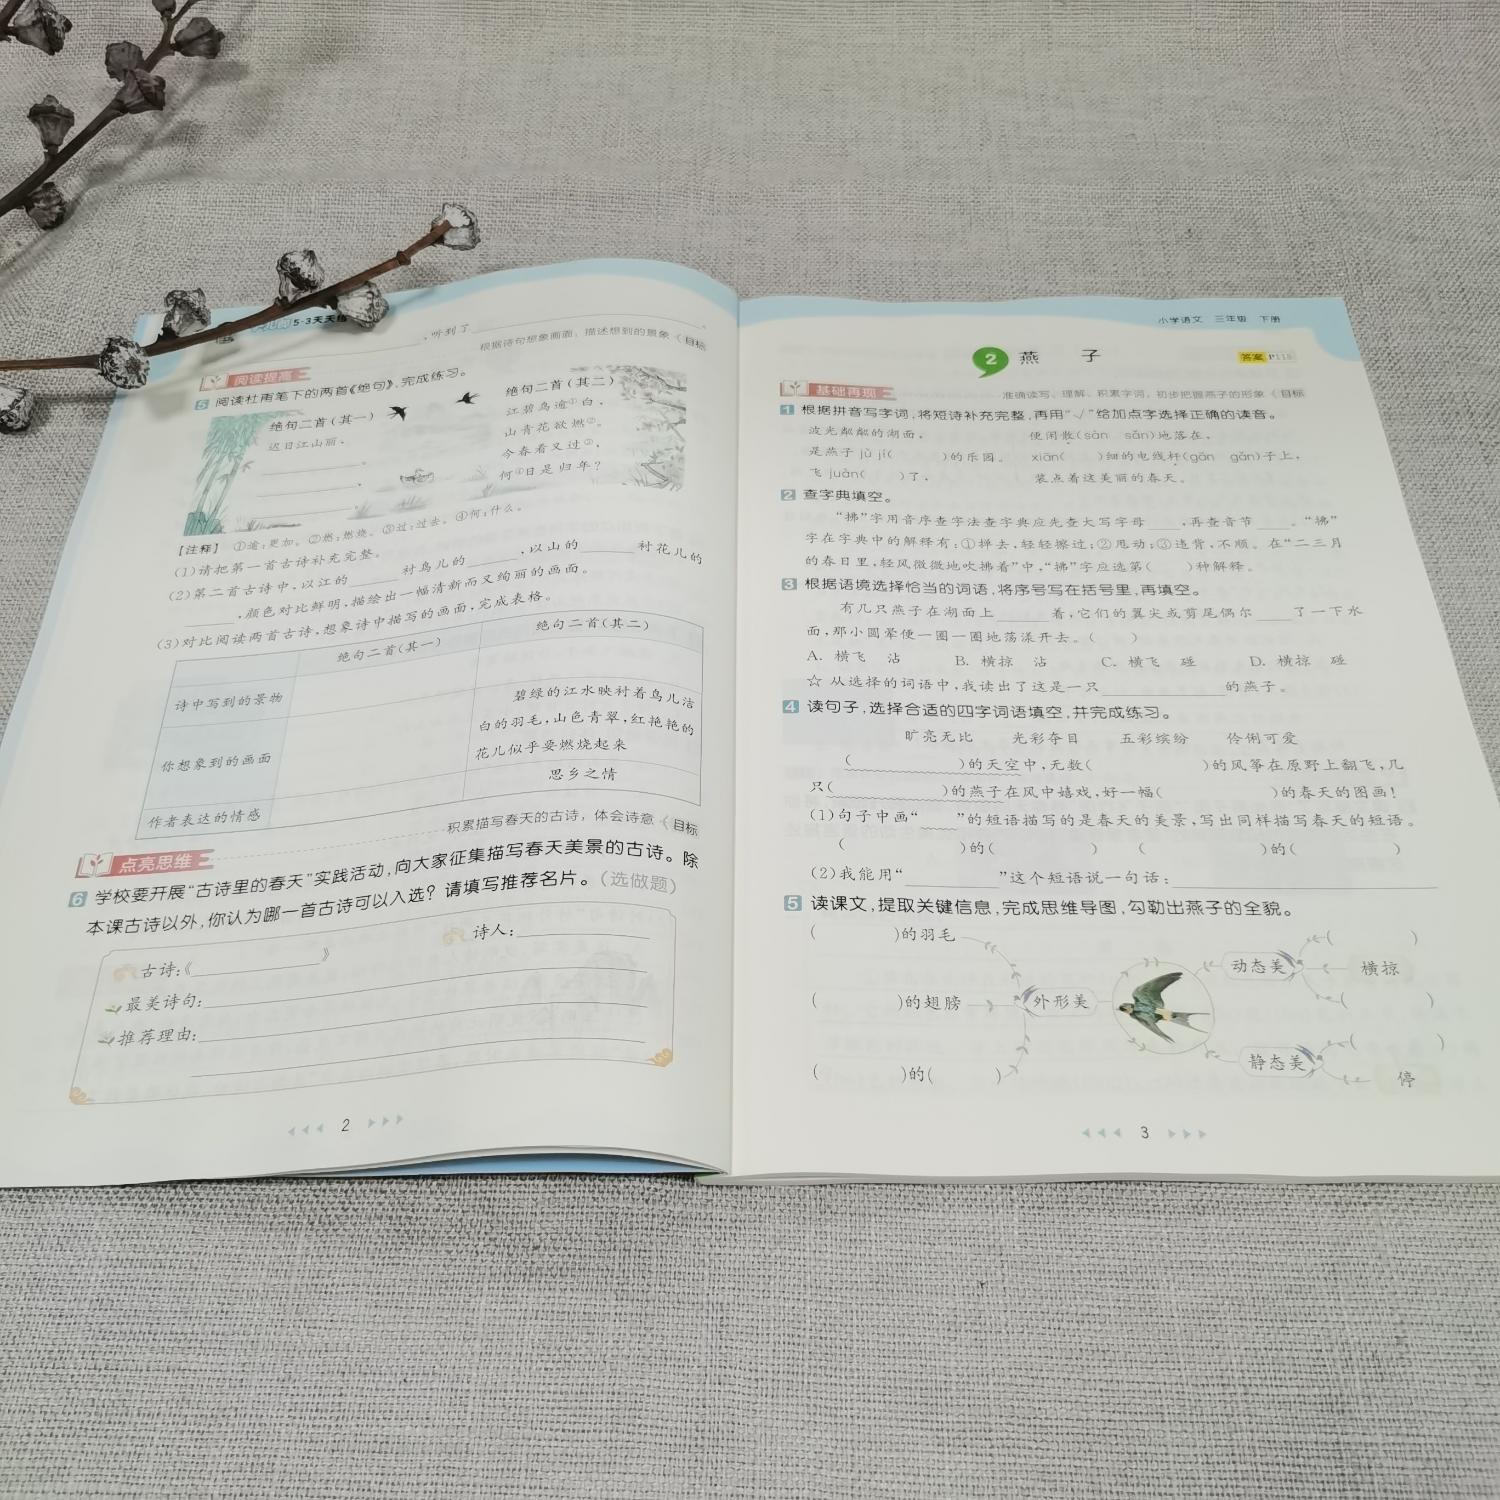 5·3天天练
，听到了
根据诗句想象画面，描述想到的景象 目标
阅读提高
5 阅读杜甫笔下的两首《绝句》，完成练习。
绝句二首（其一）
迟日江山丽，
。
，
。
绝句二首（其二）
江碧鸟逾①白，
山青花欲燃②。
今春看又过③，
何④日是归年？
【注释】 ①逾：更加。②燃：燃烧。③过：过去。④何：什么。
（1）请把第一首古诗补充完整。
（2）第二首古诗中，以江的______衬鸟儿的______，以山的______衬花儿的
______，颜色对比鲜明，描绘出一幅清新而又绚丽的画面。
（3）对比阅读两首古诗，想象诗中描写的画面，完成表格。
绝句二首（其一） 绝句二首（其二）
诗中写到的景物
你想象到的画面
碧绿的江水映衬着鸟儿洁
白的羽毛，山色青翠，红艳艳的
花儿似乎要燃烧起来
作者表达的情感 思乡之情
积累描写春天的古诗，体会诗意 目标
点亮思维
6 学校要开展“古诗里的春天”实践活动，向大家征集描写春天美景的古诗。除
本课古诗以外，你认为哪一首古诗可以入选？请填写推荐名片。（选做题）
古诗：《______》 诗人：______
最美诗句：
推荐理由：
2
小学语文 三年级 下册
2 燕 子
答案 P115
基础再现
准确读写、理解、积累字词，初步把握燕子的形象 目标
1 根据拼音写字词，将短诗补充完整，再用“√”给加点字选择正确的读音。
波光粼粼的湖面， 便闲散（sàn sǎn）地落在，
是燕子 jù jí（ ）的乐园。 xiān（ ）细的电线杆（gān gǎn）子上，
飞 juàn（ ）了， 装点着这美丽的春天。
2 查字典填空。
“拂”字用音序查字法查字典应先查大写字母____，再查音节____。“拂”
字在字典中的解释有：①掸去，轻轻擦过；②甩动；③违背，不顺。在“二三月
的春日里，轻风微微地吹拂着”中，“拂”字应选第（ ）种解释。
3 根据语境选择恰当的词语，将序号写在括号里，再填空。
有几只燕子在湖面上______着，它们的翼尖或剪尾偶尔____了一下水
面，那小圆晕便一圈一圈地荡漾开去。（ ）
A. 横飞 沾 B. 横掠 沾 C. 横飞 碰 D. 横掠 碰
☆ 从选择的词语中，我读出了这是一只______的燕子。
4 读句子，选择合适的四字词语填空，并完成练习。
旷亮无比 光彩夺目 五彩缤纷 伶俐可爱
（ ）的天空中，无数（ ）的风筝在原野上翻飞，几
只（ ）的燕子在风中嬉戏，好一幅（ ）的春天的图画！
（1）句子中画“ ”的短语描写的是春天的美景，写出同样描写春天的短语。
（ ）的（ ） （ ）的（ ）
（2）我能用“______”这个短语说一句话：______
5 读课文，提取关键信息，完成思维导图，勾勒出燕子的全貌。
（ ）的羽毛
（ ）的翅膀
（ ）的（ ）
外形美
动态美
（ ）
横掠
（ ）
静态美
（ ）
停
3